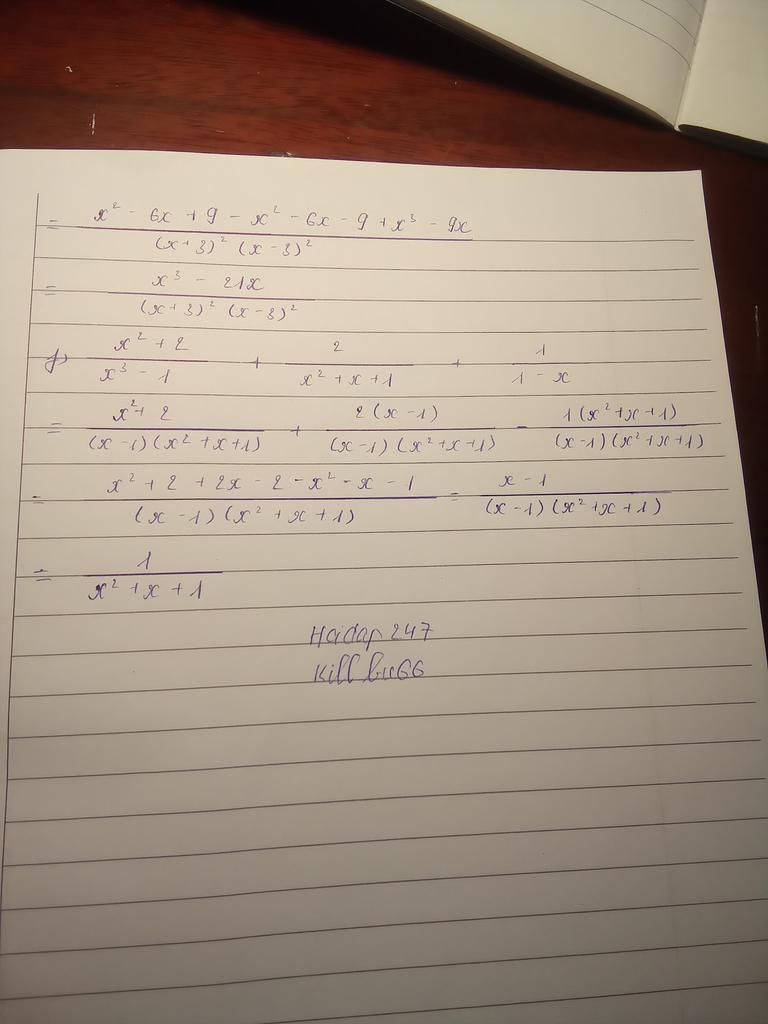 = (x² - 6x + 9 - x² - 6x - 9 + x³ - 9x) / ((x+3)² (x-3)²)
= (x³ - 21x) / ((x+3)² (x-3)²)
f) (x² + 2) / (x³ - 1) + 2 / (x² + x + 1) + 1 / (1 - x)
= (x² + 2) / ((x-1)(x² + x + 1)) + 2(x-1) / ((x-1)(x² + x + 1)) - 1(x² + x + 1) / ((x-1)(x² + x + 1))
= (x² + 2 + 2x - 2 - x² - x - 1) / ((x-1)(x² + x + 1)) = (x - 1) / ((x-1)(x² + x + 1))
= 1 / (x² + x + 1)
Hoidap 247